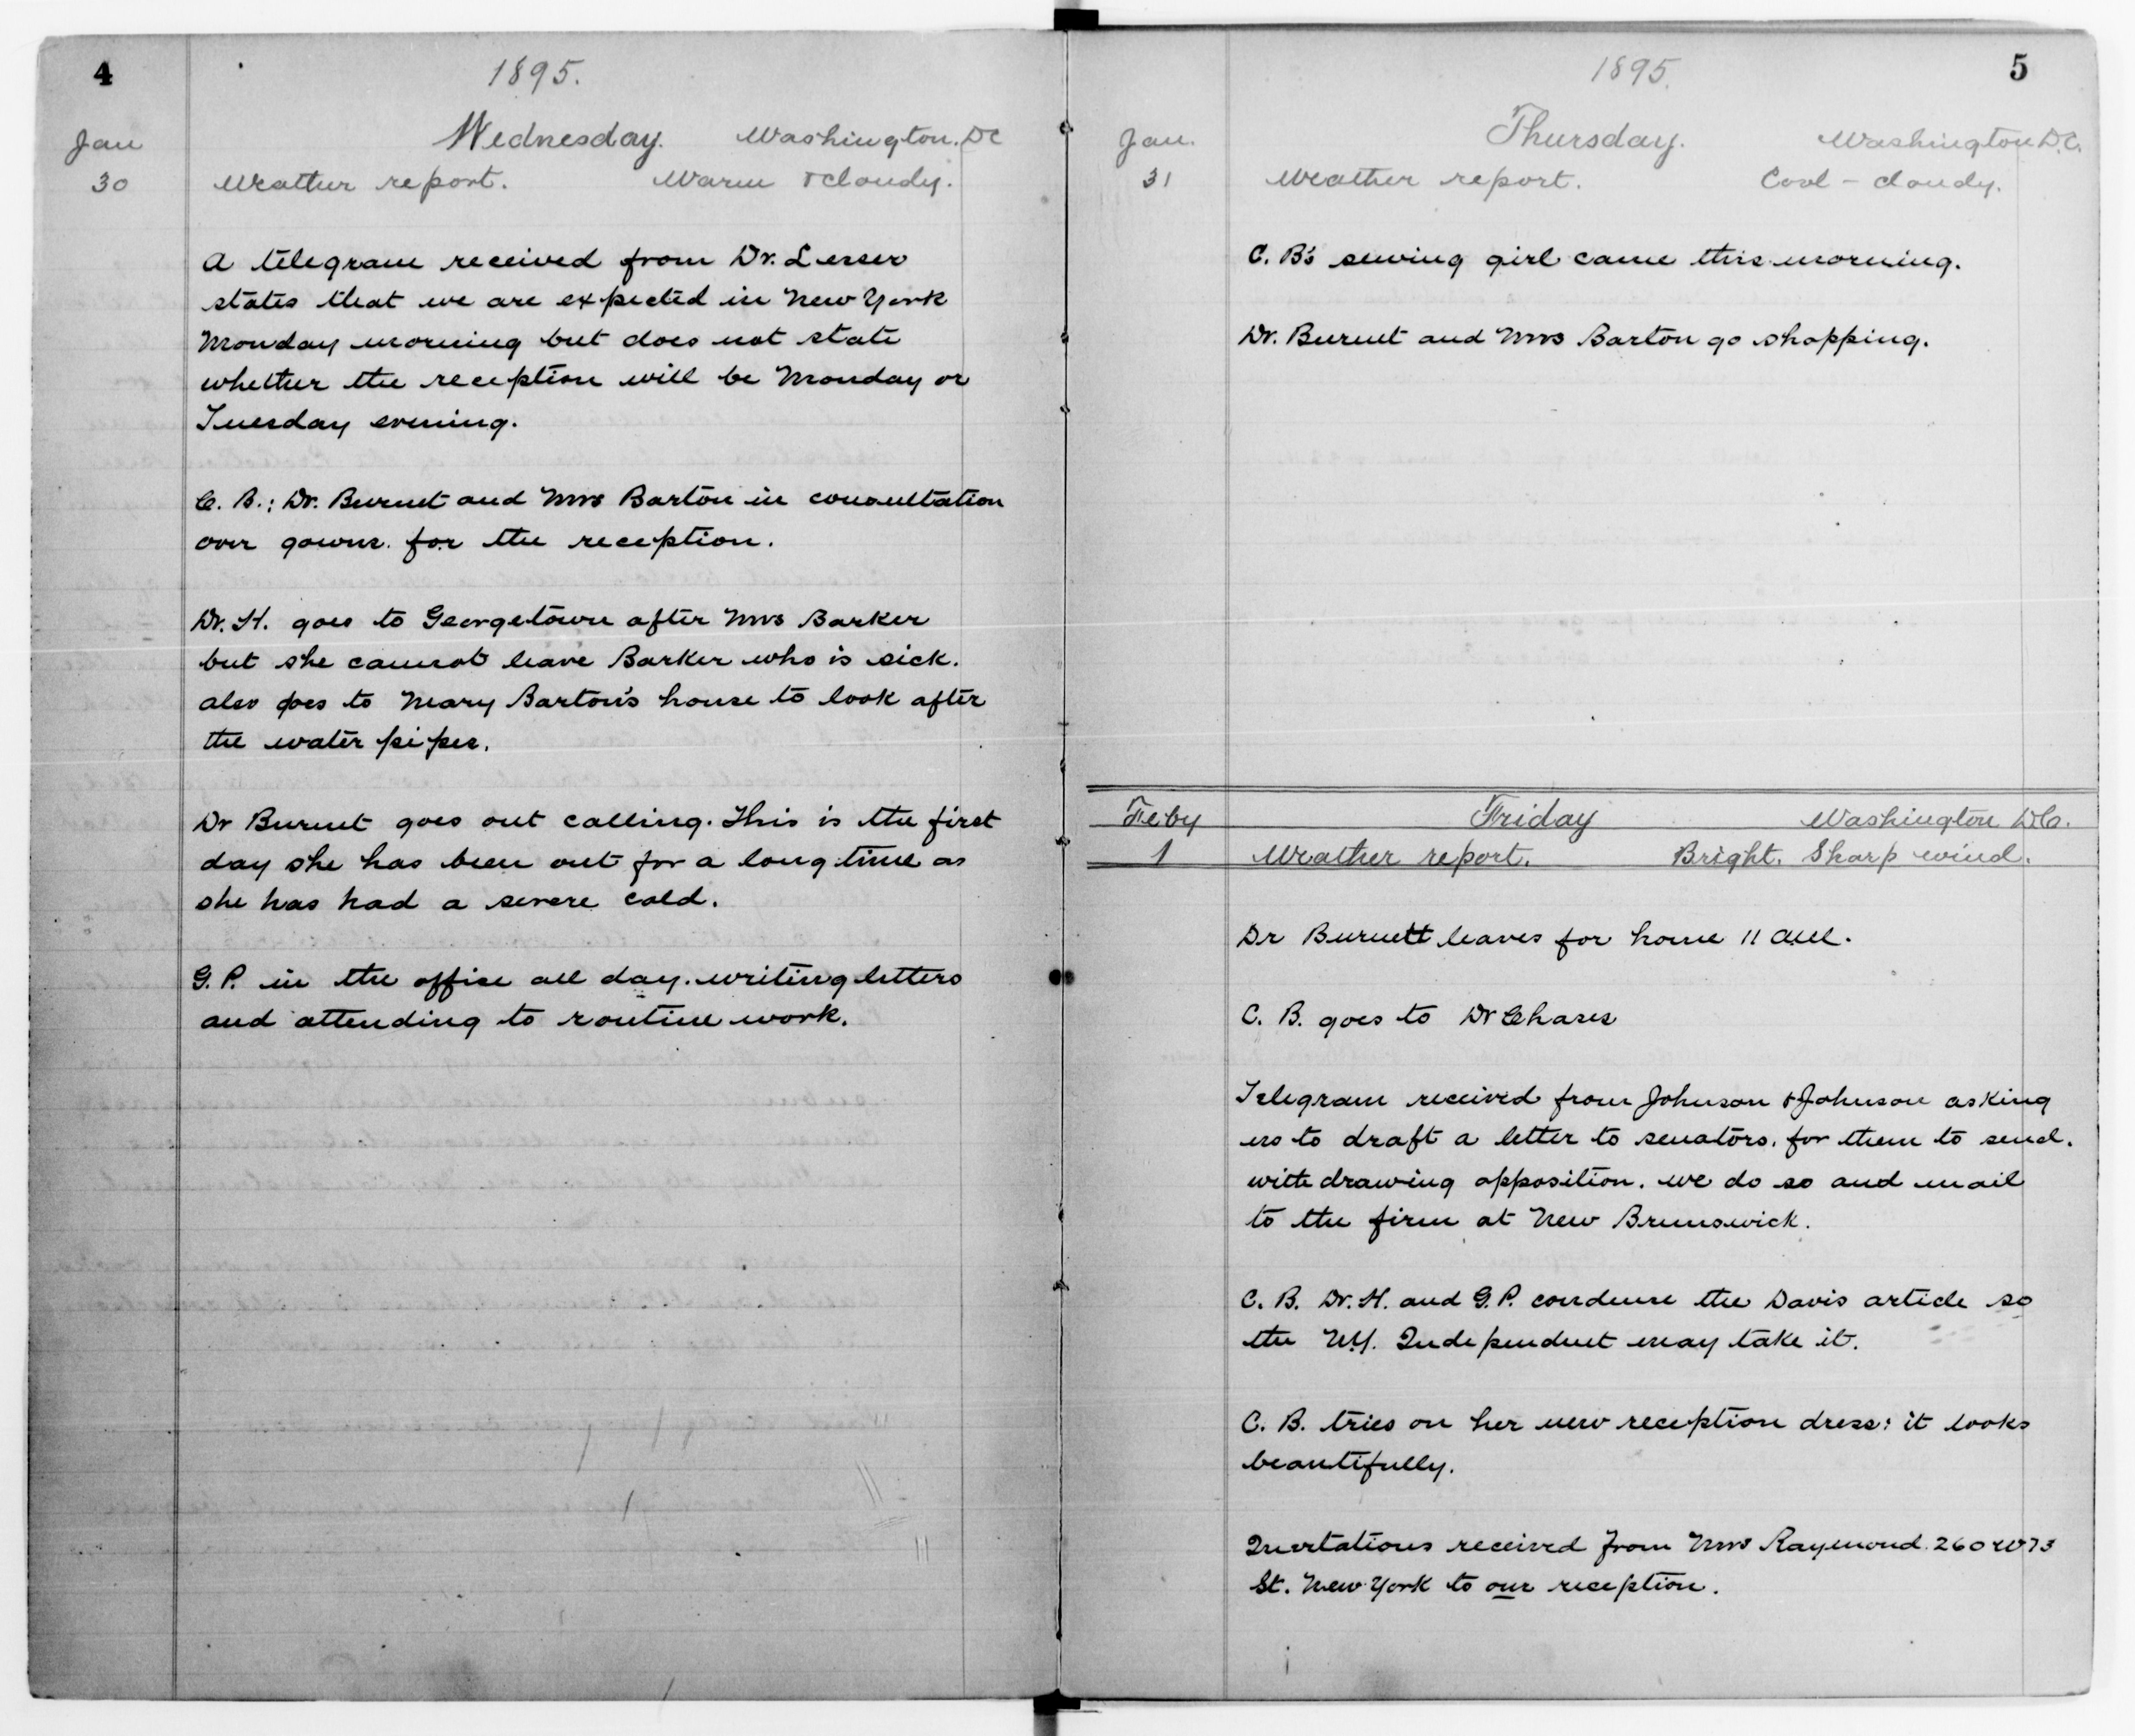 4
1895.
Jan Wednesday. Washington. DC
30 Weather report. Warm & cloudy.
A telegram received from Dr. Lesser
states that we are expected in New York
Monday morning but does not state
whether the reception will be Monday or
Tuesday evening.
C. B.; Dr. Burnet and Mrs Barton in consultation
over gowns for the reception.
Dr. H. goes to Georgetown after Mrs Barker
but she cannot leave Barker who is sick.
also goes to Mary Barton's house to look after
the water pipes.
Dr Burnet goes out calling. This is the first
day she has been out for a long time as
she has had a severe cold.
G. P. in the office all day. writing letters
and attending to routine work.
5
1895.
Jan. Thursday. Washington D.C.
31 Weather report. Cool - cloudy.
C. B's sewing girl came this morning.
Dr. Burnet and Mrs Barton go shopping.
Feby Friday Washington D.C.
1 Weather report. Bright. Sharp wind.
Dr Burnett leaves for home 11 AM.
C. B. goes to Dr Chases
Telegram received from Johnson & Johnson asking
us to draft a letter to senators, for them to send.
withdrawing opposition. we do so and mail
to the firm at New Brunswick.
C. B. Dr. H. and G. P. condense the Davis article so
the N.Y. Independent may take it.
C. B. tries on her new reception dress; it looks
beautifully.
Invitations received from Mrs Raymond. 260 W 73
St. New York to our reception.